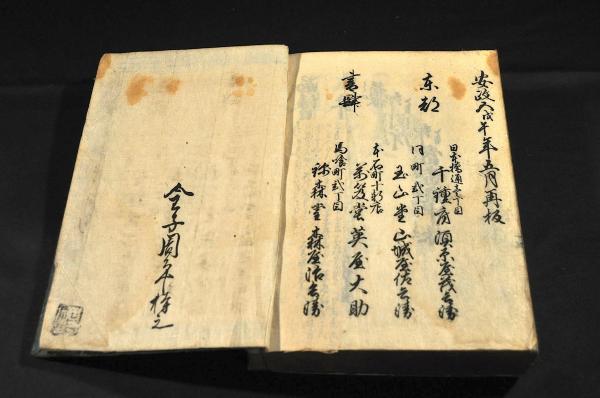 安政五戊午年五月再板
東都
日本橋通壱丁目
千鍾房 須原屋茂兵衛
同町弐丁目
玉山堂 山城屋佐兵衛
本石町十軒店
万笈堂 英屋大助
書肆
馬喰町弐丁目
森屋治兵衛
金子周